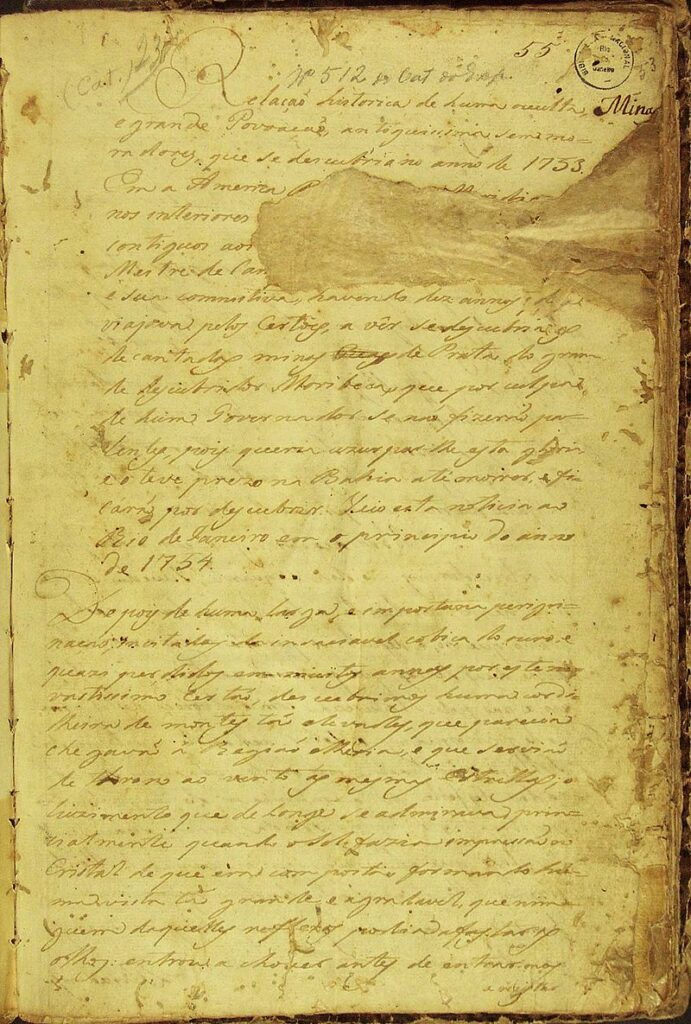 (Cat. 
55
BIBL NACIONAL Rio de Janeiro
Nº 512 do Cat. da Exp.
Minas
Relação historica de huma occulta,
e grande Povoação, antiquissima sem mo-
radores, que se descubriu no anno de 1753.
Em a America
nos interiores
contiguos aos
Mestre de Can
e sua commitiva, havendo dez annos, q̃
viajava pelos Certoẽs, a vêr se descubria as
decantadas minas de Prata do gran-
de descubridor Moribeca, que por culpa
de hum Governador se naõ fizeraõ pa-
tentes, pois queria uzurparlhe esta gloria
e o teve prezo na Bahia até morrer, e fi-
caraõ por descubrir. Veio esta noticia ao
Rio de Janeiro em o principio do anno
de 1754.
Depois de huma larga, e importuna perigri-
nação, incitados da insaciavel cobiça do ouro, e
quazi perdidos em muitos annos por este
vastissimo Certaõ, descubrimos huma cordi-
lheira de montes taõ elevados, que parecia
chegavaõ à Regiaõ etheria, e que serviaõ
de throno ao vento, às mesmas Estrellas; o
luzimento que de longe se admirava, princi-
palmente quando o Sol fazia impressaõ ao
Cristal de que era composta, formando hu-
ma vista taõ grande e agradavel, que nin-
guem daquelles reflexos podia afastar os
olhos: entrou a chover antes de entrarmos
a registar